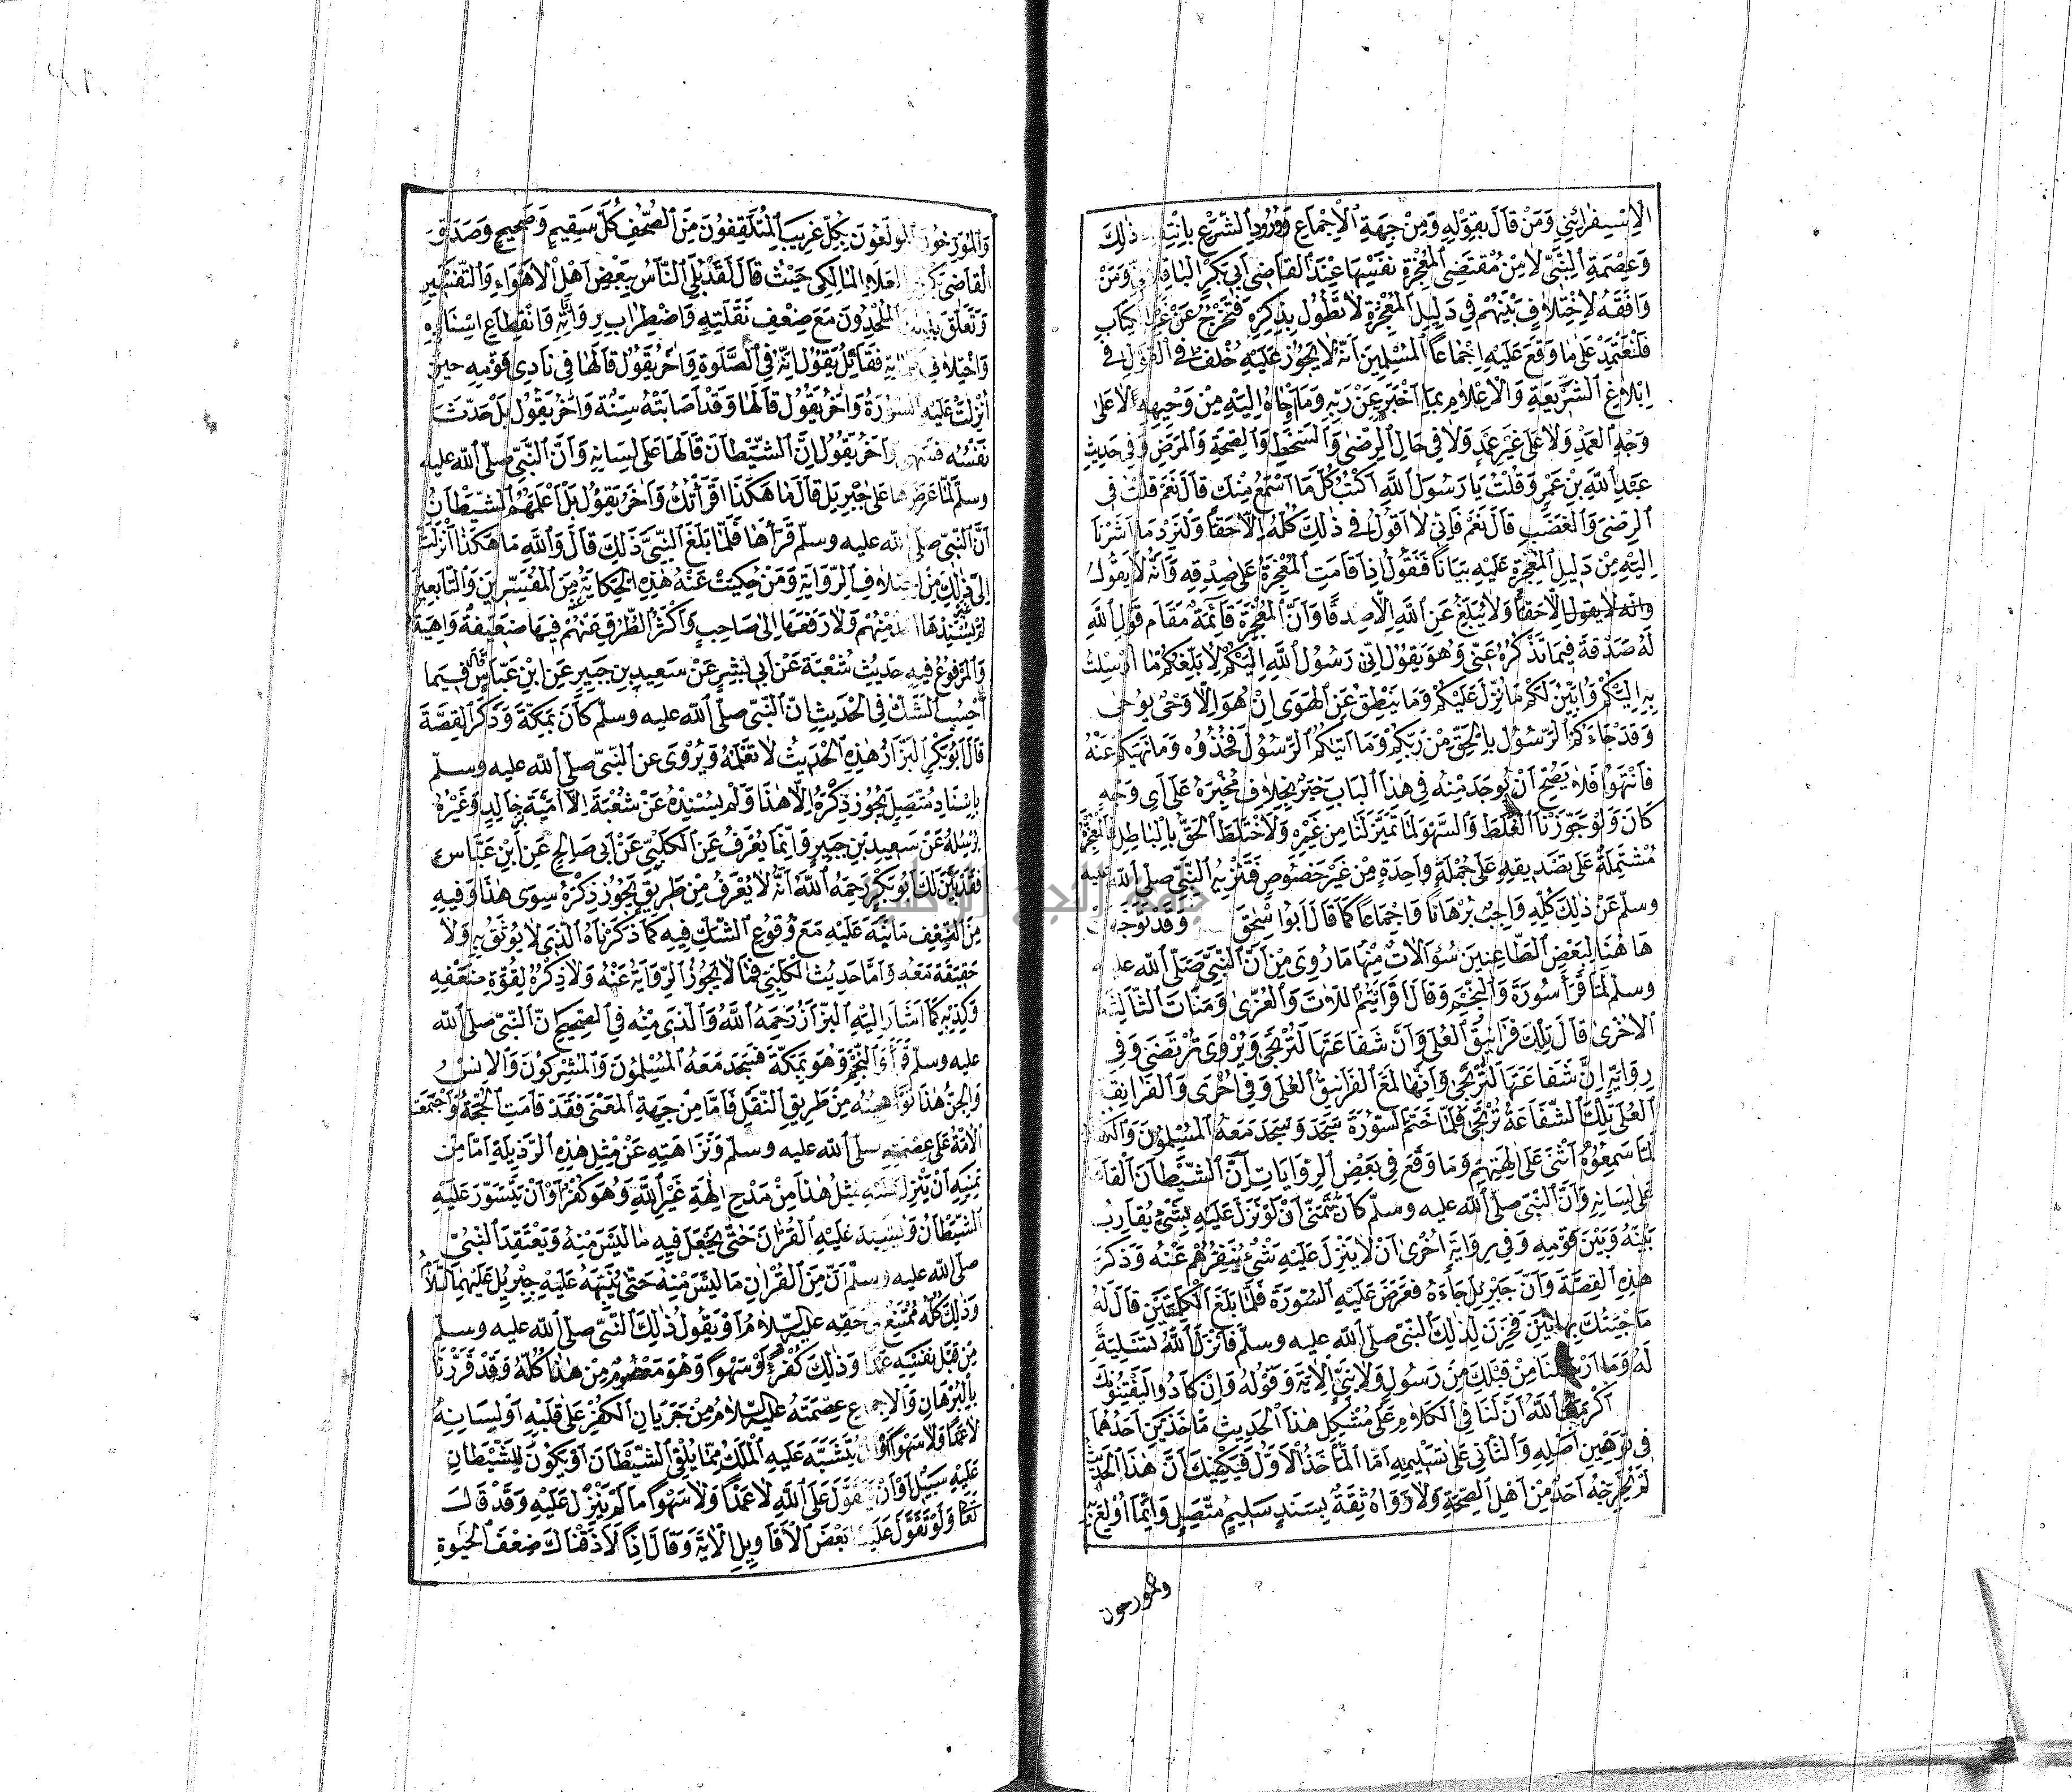 الاسفرائني ومن قال بقوله ومن جهة الاجماع وورود الشرع بانتفاء ذلك
وعصمة النبي لا من مقتضى المعجزة نفسها عند القاضي ابي بكر الباقلاني ومن
وافقه لاختلاف بينهم في دليل المعجزة لا نطول بذكره فنخرج عن غرض الكتاب
فلنعتمد على ما وقع عليه اجماع المسلمين انه لا يجوز عليه خلف في القول في
ابلاغ الشريعة والاعلام بما اخبر عن ربه وما اوحاه اليه من وحيه لا على
وجه العمد ولا على غير عمد ولا في حال الرضى والسخط والصحة والمرض وفي حديث
عبد الله بن عمر وقلت يا رسول الله اكتب كل ما اسمع منك قال نعم قلت في
الرضى والغضب قال نعم فاني لا اقول في ذلك كله الا حقا ولنزد ما اشرنا
اليه من دليل المعجزة عليه بيانا فنقول اذا قامت المعجزة على صدقه وانه لا يقول
وانه لا يقول الا حقا ولا يبلغ عن الله الا صدقا وان المعجزة قائمة مقام قول الله
له صدقة فيما تذكره عني وهو يقول اني رسول الله اليكم لابلغكم ما ارسلت
به اليكم وابين لكم ما نزل عليكم وما ينطق عن الهوى ان هو الا وحى يوحى
وقد جاءكم الرسول بالحق من ربكم وما اتيكم الرسول فخذوه وما نهيكم عنه
فانتهوا فلا يصح ان يوجد منه في هذا الباب خبر بخلاف مخبره على اى وجه
كان ولو جوزنا الغلط والسهو لما تميز لنا من غيره ولاختلط الحق بالباطل فالمعجزة
مشتملة على تصديقه على جملة واحدة من غير خصوص فتنزيه النبي صلى الله عليه
وسلم عن ذلك كله واجب برهانا واجماعا كما قال ابو اسحق وقد توجهت
ها هنا لبعض الطاعنين سؤالات منها ما روى من ان النبي صلى الله عليه
وسلم لما قرأ سورة والنجم وقال افرايتم اللات والعزى ومنات الثالثة
الاخرى قال تلك غرانيق العلى وان شفاعتها لترتجى ويروى ترتضى وفي
رواية ان شفاعتها لترتجى وانها لمع الغرانيق العلى وفي اخرى والغرانيق
العلى تلك الشفاعة ترتجى فلما ختم السورة سجد وسجد معه المسلمون والكفار
لما سمعوه اثنى على الهتهم وما وقع في بعض الروايات ان الشيطان القاها
على لسانه وان النبي صلى الله عليه وسلم كان تمنى ان لو نزل عليه شئ يقارب
بينه وبين قومه وفي رواية اخرى ان لا ينزل عليه شئ ينفرهم عنه وذكر
هذه القصة وان جبريل جاءه فعرض عليه السورة فلما بلغ الكلمتين قال له
ما جئتك بهاتين فحزن لذلك النبي صلى الله عليه وسلم فانزل الله تسلية
له وما ارسلنا من قبلك من رسول ولا نبي الاية وقوله وان كادوا ليفتنونك
اكرمك الله ان لنا في الكلام على مشكل هذا الحديث ماخذين احدهما
في توهين اصله والثاني على تسليمه اما الماخذ الاول فيكفيك ان هذا الحديث
لم يخرجه احد من اهل الصحة ولا رواه ثقة بسند سليم متصل وانما اولع
والمورخون
والمورخون المولعون بكل غريب المتلقفون من الصحف كل سقيم وصحيح وصدق
القاضي بكر بن العلاء المالكي حيث قال لقد بلي الناس ببعض اهل الاهواء والتفسير
وتعلق بذلك الملحدون مع ضعف نقلته واضطراب رواته وانقطاع اسناده
واختلاف كلماته فقائل يقول انه في الصلوة واخر يقول قالها في نادى قومه حين
انزلت عليه السورة واخر يقول قالها وقد اصابته سنة واخر يقول بل حدث
نفسه فسهى واخر يقول ان الشيطان قالها على لسانه وان النبي صلى الله عليه
وسلم لما عرضها على جبريل قال ما هكذا اقرأتك واخر يقول بل اعلمهم الشيطان
ان النبي صلى الله عليه وسلم قرأها فلما بلغ النبي ذلك قال والله ما هكذا انزلت
الى ذلك من اختلاف الرواية ومن حكيت عنه هذه الحكاية من المفسرين والتابعين
لم يسندها احد منهم ولا رفعها الى صاحب واكثر الطرق عنهم فيها ضعيفة واهية
والمرفوع فيه حديث شعبة عن ابي بشر عن سعيد بن جبير عن ابن عباس قال فيما
احسب الشك في الحديث ان النبي صلى الله عليه وسلم كان بمكة وذكر القصة
قال ابو بكر البزار هذه الحديث لا نعلمه يروى عن النبي صلى الله عليه وسلم
باسناد متصل يجوز ذكره الا هذا ولم يسنده عن شعبة الا امية بن خالد وغيره
يرسله عن سعيد بن جبير وانما يعرف عن الكلبي عن ابي صالح عن ابن عباس
فقد بين لك ابو بكر رحمه الله انه لا يعرف من طريق يجوز ذكره سوى هذا وفيه
من الضعف ما نبه عليه مع وقوع الشك فيه كما ذكرناه الذي لا يوثق به ولا
حقيقة معه واما حديث الكلبي فما لا يجوز الرواية عنه ولا ذكره لقوة ضعفه
وكذبه كما اشار اليه البزار رحمه الله والذي منه في الصحيح ان النبي صلى الله
عليه وسلم قرأ والنجم وهو بمكة فسجد معه المسلمون والمشركون والانس
والجن هذا توهينه من طريق النقل فاما من جهة المعنى فقد قامت الحجة واجتمعت
الامة على عصمته صلى الله عليه وسلم ونزاهته عن مثل هذه الرذيلة اما من
تمنيه ان ينزل عليه مثل هذا من مدح الهة غير الله وهو كفر او ان يتسور عليه
الشيطان ويشبه عليه القرآن حتى يجعل فيه ما ليس منه ويعتقد النبي
صلى الله عليه وسلم ان من القرآن ما ليس منه حتى ينبهه عليه جبريل عليهما السلام
وذلك كله ممتنع في حقه عليه السلام او يقول ذلك النبي صلى الله عليه وسلم
من قبل نفسه عمدا وذلك كفر او سهوا وهو معصوم من هذا كله وقد قررنا
بالبرهان والاجماع عصمته عليه السلام من جريان الكفر على قلبه او لسانه
لا عمدا ولا سهوا او ان يتشبه عليه الملك مما يلقي الشيطان او يكون للشيطان
عليه سبيل او ان يتقول على الله لا عمدا ولا سهوا ما لم ينزل عليه وقد قال
تعالى ولو تقول علينا بعض الاقاويل الاية وقال اذا لاذقناك ضعف الحيوة